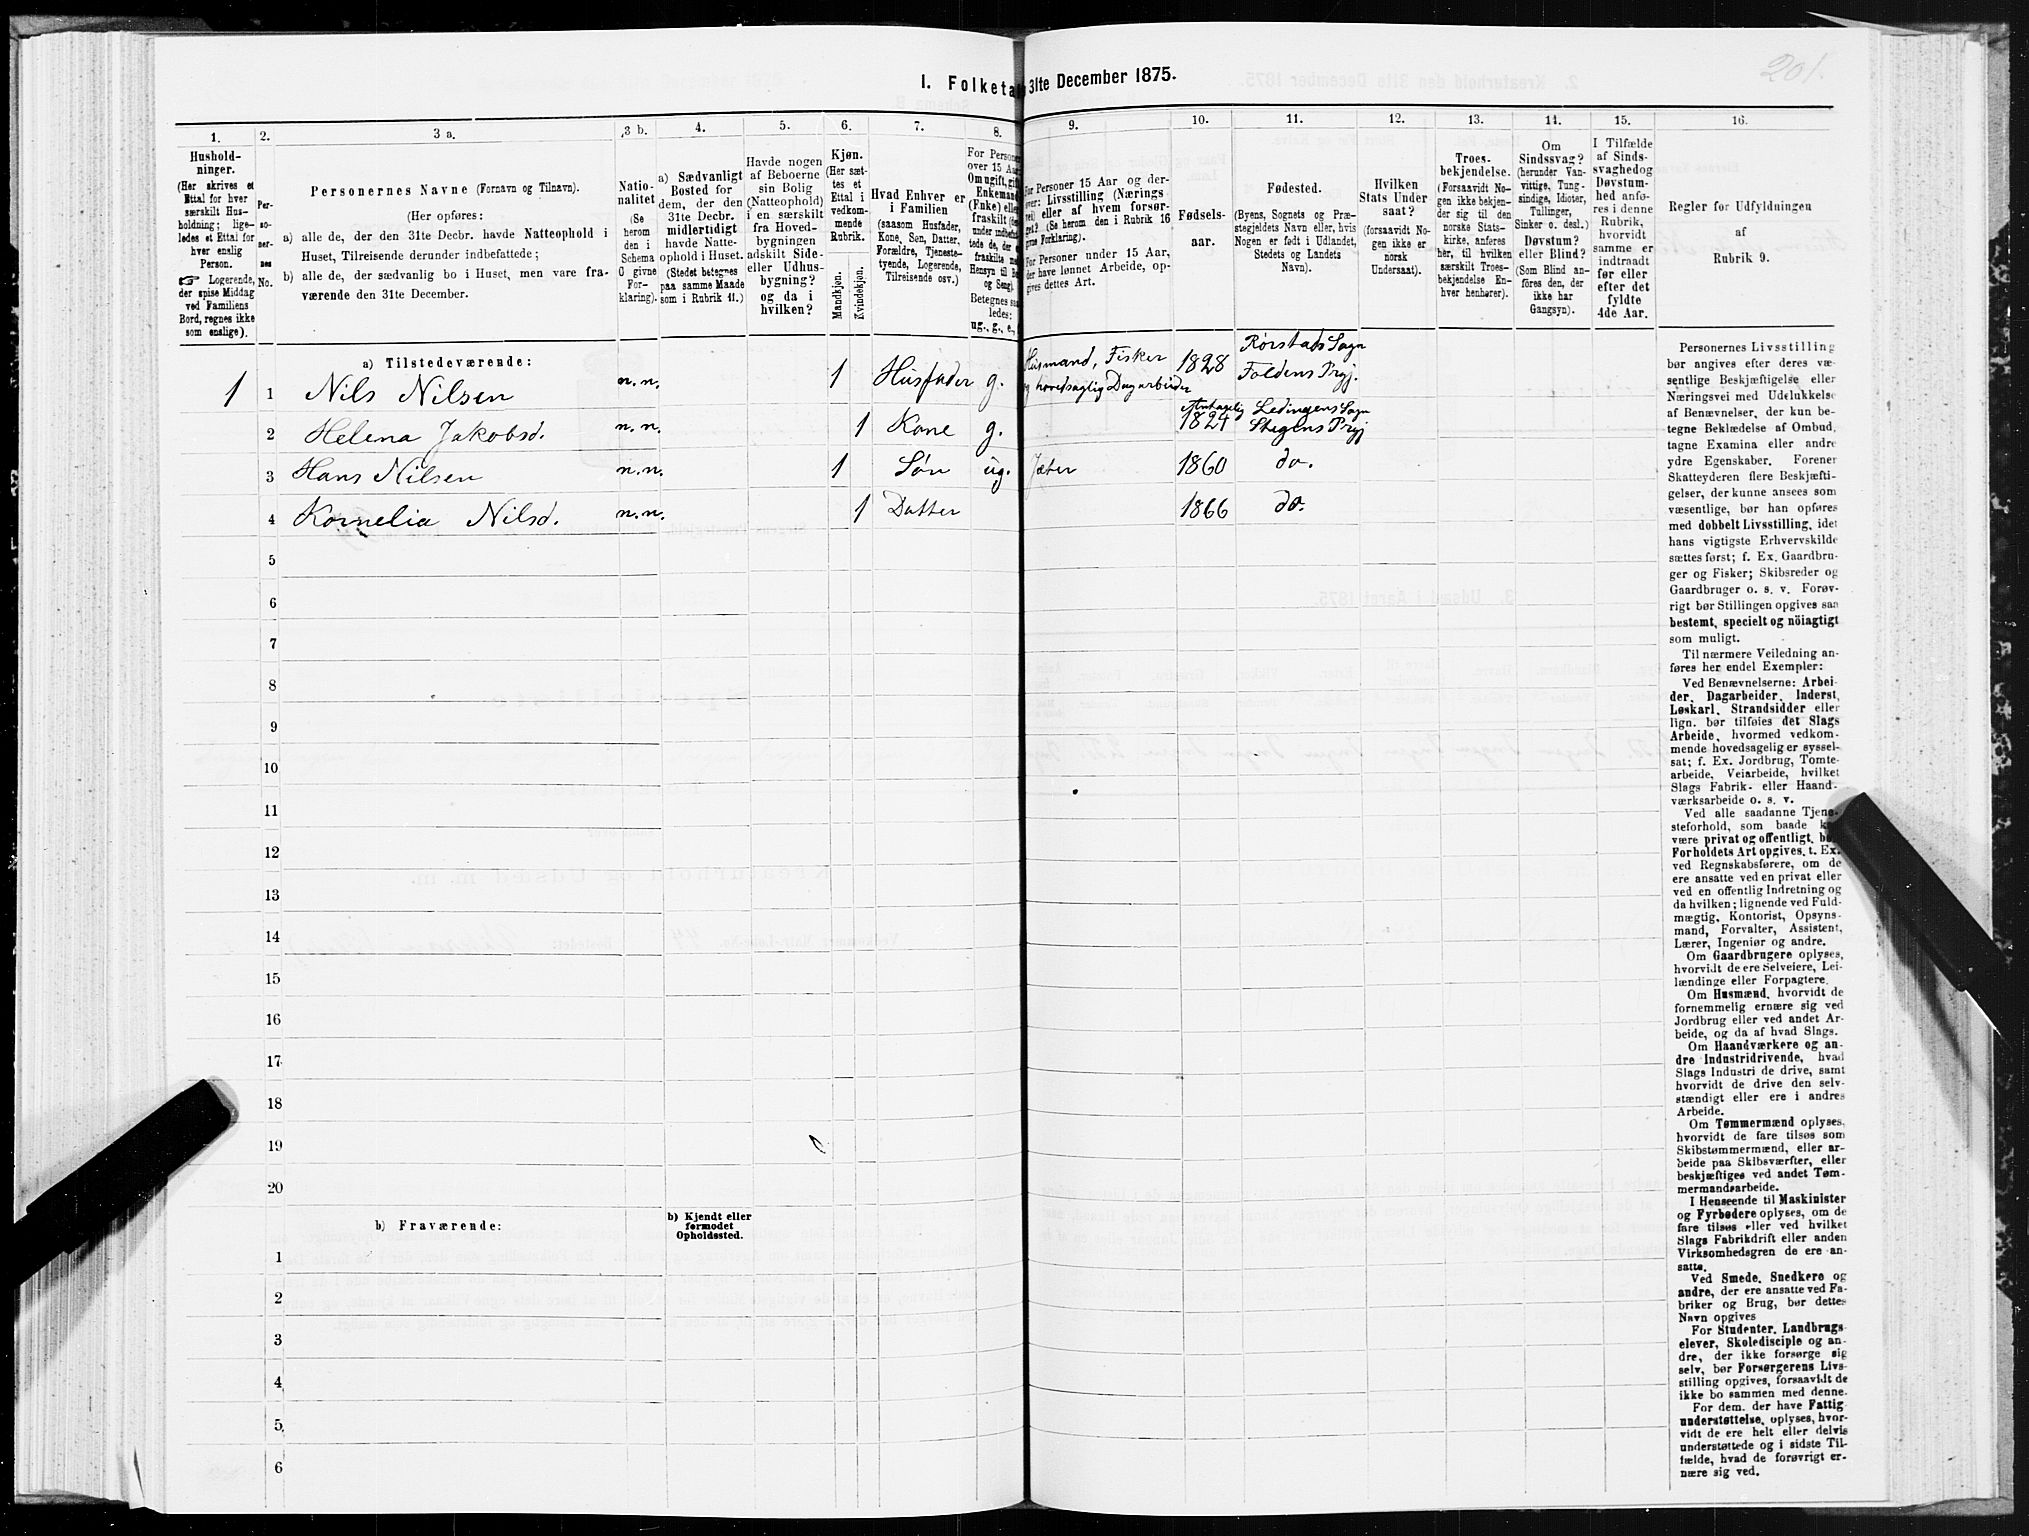 201.
I. Folketæ 31te December 1875.
1. 2. 3 a. 3 b. 4. 5. 6. 7. 8. 9. 10. 11. 12. 13. 14. 15. 16.
Hushold-
ninger.
(Her skrives et
Ettal for hver
særskilt Hus-
holdning; lige-
ledes et Ettal for
hver enslig
Person.
☞ Logerende,
der spise Middag
ved Familiens
Bord, regnes ikke
som enslige).
Per-
so-
ner-
nes
No.
Personernes Navne (Fornavn og Tilnavn).
(Her opføres:
a) alle de, der den 31te Decbr. havde Natteophold i
Huset, Tilreisende derunder indbefattede;
b) alle de, der sædvanlig bo i Huset, men vare fra-
værende den 31te December.
Natio-
nalitet
(Se
herom
den i
Schema
C givne
For-
klaring).
a) Sædvanligt
Bosted for
dem, der den
31te Decbr.
midlertidigt
havde Natte-
ophold i Huset.
(Stedet betegnes
paa samme Maade
som i Rubrik 11.)
Havde nogen
af Beboerne
sin Bolig
(Natteophold)
i en særskilt
fra Hoved-
bygningen
adskilt Side-
eller Udhus-
bygning?
og da i
hvilken?
Kjøn.
(Her sæt-
tes et
Ettal i
vedkom-
mende
Rubrik.
Mandkjøn.
Kvindekjøn.
Hvad Enhver er
i Familien
(saasom Husfader,
Kone, Søn, Datter,
Forældre, Tjeneste-
tyende, Logerende,
Tilreisende osv.)
For Persone
over 15 Aar
Om ugift, gift
Enkemand
(Enke) elle
fraskilt
under indbefat
tede de, der
fraskilte m
Hensyn til B
og Seng).
Betegnes saa
ledes:
ug., g., e.,
For Personer 15 Aar og der-
over: Livsstilling (Nærings
vei) eller af hvem forsør-
get? (Se herom den i Rubrik 16
givne Forklaring).
For Personer under 15 Aar,
der have lønnet Arbeide, op-
gives dettes Art.
Fødsels-
aar.
Fødested.
(Byens, Sognets og Præ-
stegjeldets Navn eller, hvis
Nogen er født i Udlandet,
Stedets og Landets
Navn).
Hvilken
Stats Under
saat?
(hvis No-
gen ikke er
norsk
Undersaat).
Troes-
bekjendelse.
(Forsaavidt No-
gen ikke bekjen-
der sig til den
norske Stats-
kirke, anføres
her, til hvilken
særskilt Troes-
bekjendelse En-
hver henhører).
Om
Sindssvag?
(herunder Van-
vittige, Tung-
sindige, Idioter,
Tullinger,
Sinker o. desl.)
Døvstum?
eller Blind?
(Som Blind an-
føres den, der
ikke har
Gangsyn).
I Tilfælde
af Sinds-
svaghed og
Døvstum-
hed anfø-
res i denne
Rubrik,
hvorvidt
samme er
indtraadt
før eller
efter det
fyldte
4de Aar.
Regler for Udfyldningen
af
Rubrik 9.
a) Tilstedeværende:
1 1 Nils Nilsen n.n. 1 Husfader g. Husmand, Fisker og hovedsaglig Dagarbeider 1828 Rørstads Sogn Foldens Prgj.
2 Helena Jakobsd. n.n. 1 Kone g. Antagelig 1824 Lødingens Sogn Stegens Prgj
3 Hans Nilsen n.n. 1 Søn ug. Jæter 1860 do.
4 Kornelia Nilsd. n.n. 1 Datter 1866 do.
5
6
7
8
9
10
11
12
13
14
15
16
17
18
19
20
b) Fraværende:
b) Kjendt eller
formodet
Opholdssted.
1
2
3
4
5
6
Personernes Livsstilling
bør angives efter deres væ-
sentlige Beskjæftigelse eller
Næringsvei med Udelukkelse
af Benævnelser, der kun be-
tegne Beklædelse af Ombud,
tagne Examina eller andre
ydre Egenskaber. Forener
Skatteyderen flere Beskjæfti-
gelser, der kunne ansees som
væsentlige, bør han opføres
med dobbelt Livsstilling, idet
hans vigtigste Erhvervskilde
sættes først; f. Ex. Gaardbru-
ger og Fisker; Skibsreder og
Gaardbruger o. s. v. Forøv-
rigt bør Stillingen opgives saa
bestemt, specielt og nöiagtigt
som muligt.
Til nærmere Veiledning an-
føres her endel Exempler:
Ved Benævnelserne: Arbei-
der, Dagarbeider, Inderst,
Løskarl, Strandsidder eller
lign. bør tilføies det Slags
Arbeide, hvormed vedkom-
mende hovedsagelig er syssel-
sat; f. Ex. Jordbrug, Tomte-
arbeide, Veiarbeide, hvilket
Slags Fabrik- eller Haand-
værksarbeide o. s. v.
Ved alle saadanne Tjene-
steforhold, som baade k
være privat og offentligt, bø
Forholdets Art opgives, t. Ex.
ved Regnskabsførere, om de
ere ansatte ved en privat eller
ved en offentlig Indretning og
da hvilken; lignende ved Fuld-
mægtig, Kontorist, Opsyns-
mand, Forvalter, Assistent,
Lærer, Ingeniør og andre.
Om Gaardbrugere oplyses,
hvorvidt de ere Selveiere, Lei-
lændinge eller Forpagtere.
Om Husmænd, hvorvidt de
fornemmelig ernære sig ved
Jordbrug eller ved andet Ar-
beide, og da af hvad Slags.
Om Haandværkere og an-
dre Industridrivende, hvad
Slags Industri de drive, samt
hvorvidt de drive den selv-
stændigt eller ere i andres
Arbeide.
Om Tømmermænd oplyses,
hvorvidt de fare tilsøs som
Skibstømmermænd, eller ar-
beide paa Skibsværfter, eller
beskjæftiges ved andet Tøm-
mermandsarbeide.
I Henseende til Maskinister
og Fyrbødere oplyses, om de
fare tilsøs eller ved hvilket
Slags Fabrikdrift eller anden
Virksomhedsgren de ere an-
satte.
Ved Smede, Snedkere og
andre, der ere ansatte ved Fa-
briker og Brug, bør dettes
Navn opgives
For Studenter, Landbrugs-
elever, Skoledisciple og an-
dre, der ikke forsørge sig
selv, bør Forsørgerens Livs-
stilling opgives, forsaavidt de
ikke bo sammen med denne.
For dem, der have Fattig-
understøttelse, oplyses, hvor-
vidt de ere helt eller delvis
understøttede og i sidste Til-
fælde, hvad de forøvrigt er-
nære sig ved.